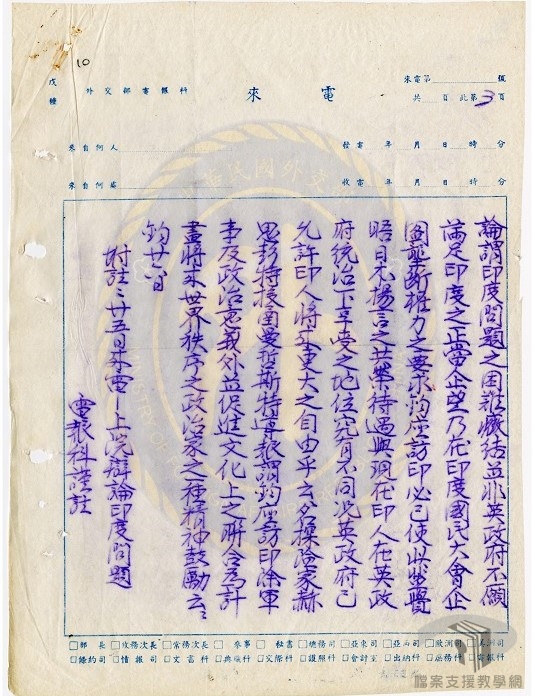 10
戊種
外交部電報科
來電
來電第 號
共 頁此第3頁
來自何人
發電 年 月 日 時 分
來自何處
收電 年 月 日 時 分
論謂印度問題之困難癥結並非英政府不願
滿足印度之正當企望乃在印度國民大會企
圖壟斷權力之要求鈞座訪印必已使
晤日本揚言之共榮待遇與現在印人在英政
府統治下享受之地位究有不同況英政府已
允許印人將來更大之自由乎云名探險家赫
思彭特投函曼哲斯特導報謂鈞座訪印除軍
事及政治意義外並促進文化上之聯合為計
畫將來世界秩序之政治家之一種精神鼓勵云云
鈞廿六日
附註：廿五日來電—上院辯論印度問題
電報科謹註
部長
政務次長
常務次長
參事
秘書
總務司
亞東司
亞西司
歐洲司
美洲司
條約司
情報司
文書科
典職科
交際科
護照科
會計室
出納科
庶務科
電報科
檔案支援教學網